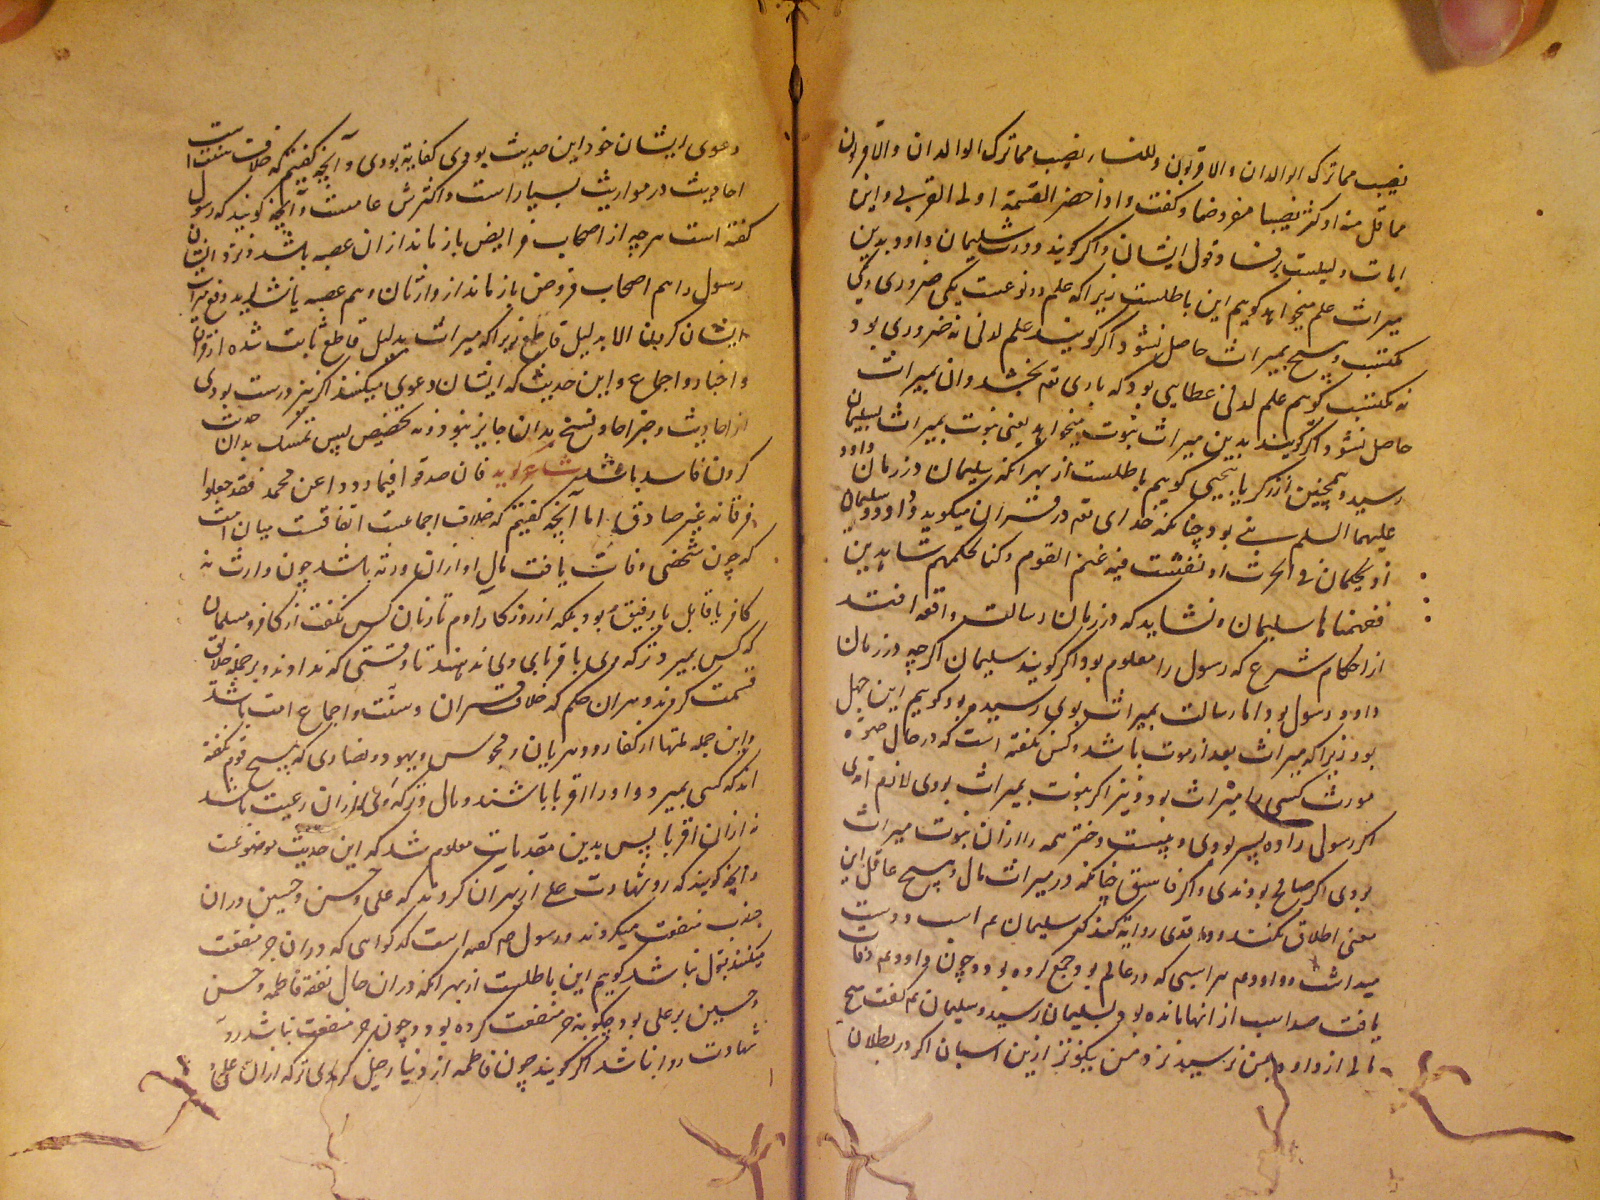 نصیب مما ترک الوالدان والاقربون وللنساء نصیب مما ترک الوالدان والاقربون
مما قل منه او کثر نصیبا مفروضا و گفت واذا حضر القسمة اولوا القربی و این
ایات دلیلست بر فساد قول ایشان و اگر گویند وورث سلیمان داود بدین
میراث علم میخواهد گوییم این باطلست زیرا که علم دو نوعست یکی ضروری و یکی
مکتسب و هیچ بمیراث حاصل نشود اگر گویند علم لدنی نه ضروری بود
نه مکتسب گوییم علم لدنی عطایی بود که باری تع بخشد و ان بمیراث
حاصل نشود و اگر گویند بدین میراث نبوت میخواهد یعنی نبوت بمیراث بسلیمان
رسید و همچنین از زکریا بیحیی گوییم باطلست از بهر انکه سلیمان در زمان داود
علیهما السلم نبی بود چنانکه خدای تع در قران میگوید و داود و سلیمان
اذ یحکمان فی الحرث اذ نفشت فیه غنم القوم وکنا لحکمهم شاهدین
ففهمناها سلیمان و نشاید که در زمان رسالت واقعه افتد
از احکام شرع که رسول را معلوم بود اگر گویند سلیمان اگرچه در زمان
داود رسول بود اما رسالت بمیراث بوی رسیده بود گوییم این جهل
بود زیرا که میراث بعد از موت باشد و کس نگفته است که در حال حیوة
مورث کسی را میراث بود و نیز اگر نبوت بمیراث بودی لازم امدی
اگر رسول را ده پسر بودی و بیست دختر همه را از ان نبوت میراث
بودی اگر صالح بودندی و اگر فاسق چنانکه در میراث مال و هیچ عاقل این
معنی اطلاق نکند و قومی روایة کنند که سلیمان ع م اسب دوست
میداشت و داود ع م هر اسبی که در عالم بود جمع کرده بود و چون داود ع م وفات
یافت صد اسب از انها مانده بود بسلیمان رسید و سلیمان ع م گفت هیچ
مالی از داود بمن نرسید نزد من نیکوتر ازین اسبان اگر در بطلان
دعوی ایشان خود این حدیث بودی کفایة بودی و آنچه گفتیم که خلاف سنت است
احادیث در مواریث بسیار است و اکثرش عامست و آنچه گویند که رسول
گفته است هر چه از اصحاب فرایض باز ماند از ان عصبه باشد و نزد ایشان
رسول را هم اصحاب فروض باز ماند از وارثان و هم عصبه پس نشاید دفع میراث
ایشان کردن الا بدلیل قاطع زیرا که میراث بدلیل قاطع ثابت شده از قران
و اخبار و اجماع و این حدیث که ایشان دعوی میکنند اگر نیز درست بودی
از احادیث و خبر احاد نسخ بدان جایز نبود و نه تخصیص پس تمسک بدان
کردن فاسد باشد شاعر گوید فان صدقوا فیما رووا عن محمد فقد جعلوا
فرقانه غیر صادق اما آنچه گفتیم که خلاف اجماعست اتفاقست میان امت
که چون شخصی وفات یافت مال او از ان ورثه باشد چون وارث نه
کافر یا قاتل یا رقیق بود بلکه از روزگار آدم تا زمان کس نگفت از کافر و مسلمان
که کس بمیرد ترکه وی باقربای وی ندهند تا وقتی که فدا دند و بر جمله خلاف
قسمت کردند و هر ان حکم که خلاف قران و سنت و اجماع امت باشد
و این جمله ملتها از کفار و دهریان و مجوس و یهود و نصاری که هیچ قوم نگفته
اند که کسی بمیرد و او را اقربا باشند و مال و ترکه وی از ان رعیت باشد
نه از ان اقربا پس بدین مقدمات معلوم شد که این حدیث موضوعست
و آنچه گویند که رد شهادت علی از بهر ان کردند که علی و حسن و حسین در ان
جذب منفعت میکردند و رسول ص م گفته است که گواهی که در ان جر منفعت
میکند قبول نباشد گوییم این باطلست از بهر انکه در ان حال نفقة فاطمه و حسن
و حسین بر علی بود چگونه جر منفعت کرده بود و چون جر منفعت نباشد رد
شهادت روا نباشد اگر گویند چون فاطمه از دنیا رحیل کردی ترکه از ان علی